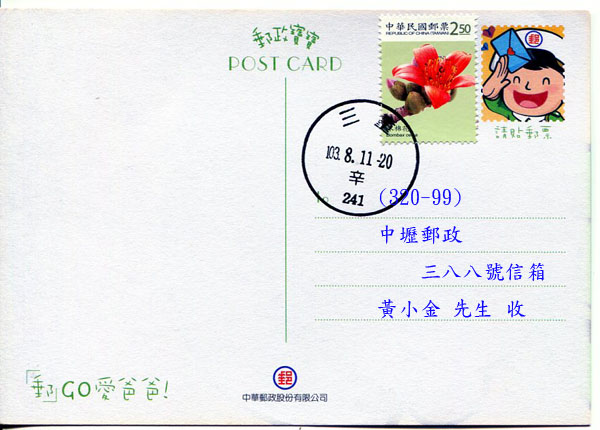 郵政寶寶
POST CARD
中華民國郵票
REPUBLIC OF CHINA (TAIWAN)
2.50
木棉花
Bombax ceiba
郵
請貼郵票
三重
103. 8. 11.-20
辛
241
To
(320-99)
中壢郵政
三八八號信箱
黃小金 先生 收
「郵」GO愛爸爸!
郵
中華郵政股份有限公司